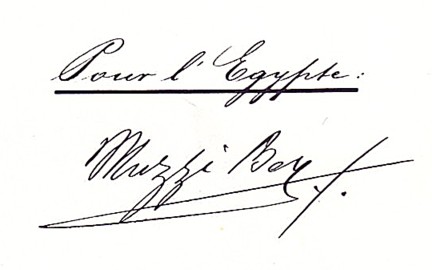 Pour l'Egypte:
Muzzi Bey